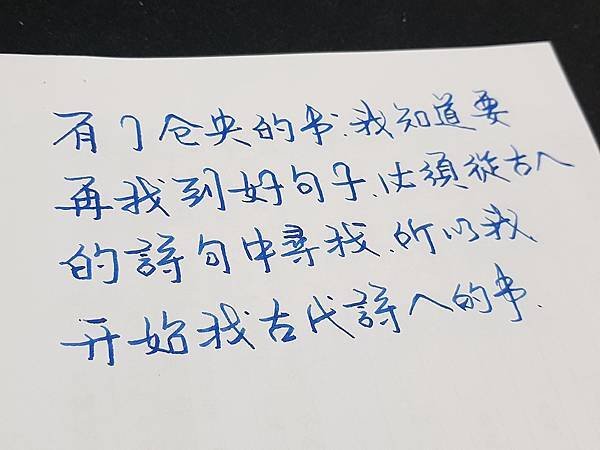 有了仓央的书.我知道要
再找到好句子.必須從古人
的詩句中尋找.所以我
开始找古代詩人的书.